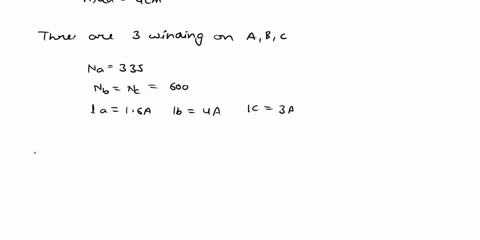 There are 3 winding on A, B, C
Na = 335
Nb = Nc = 600
Ia = 1.6A Ib = 4A IC = 3A